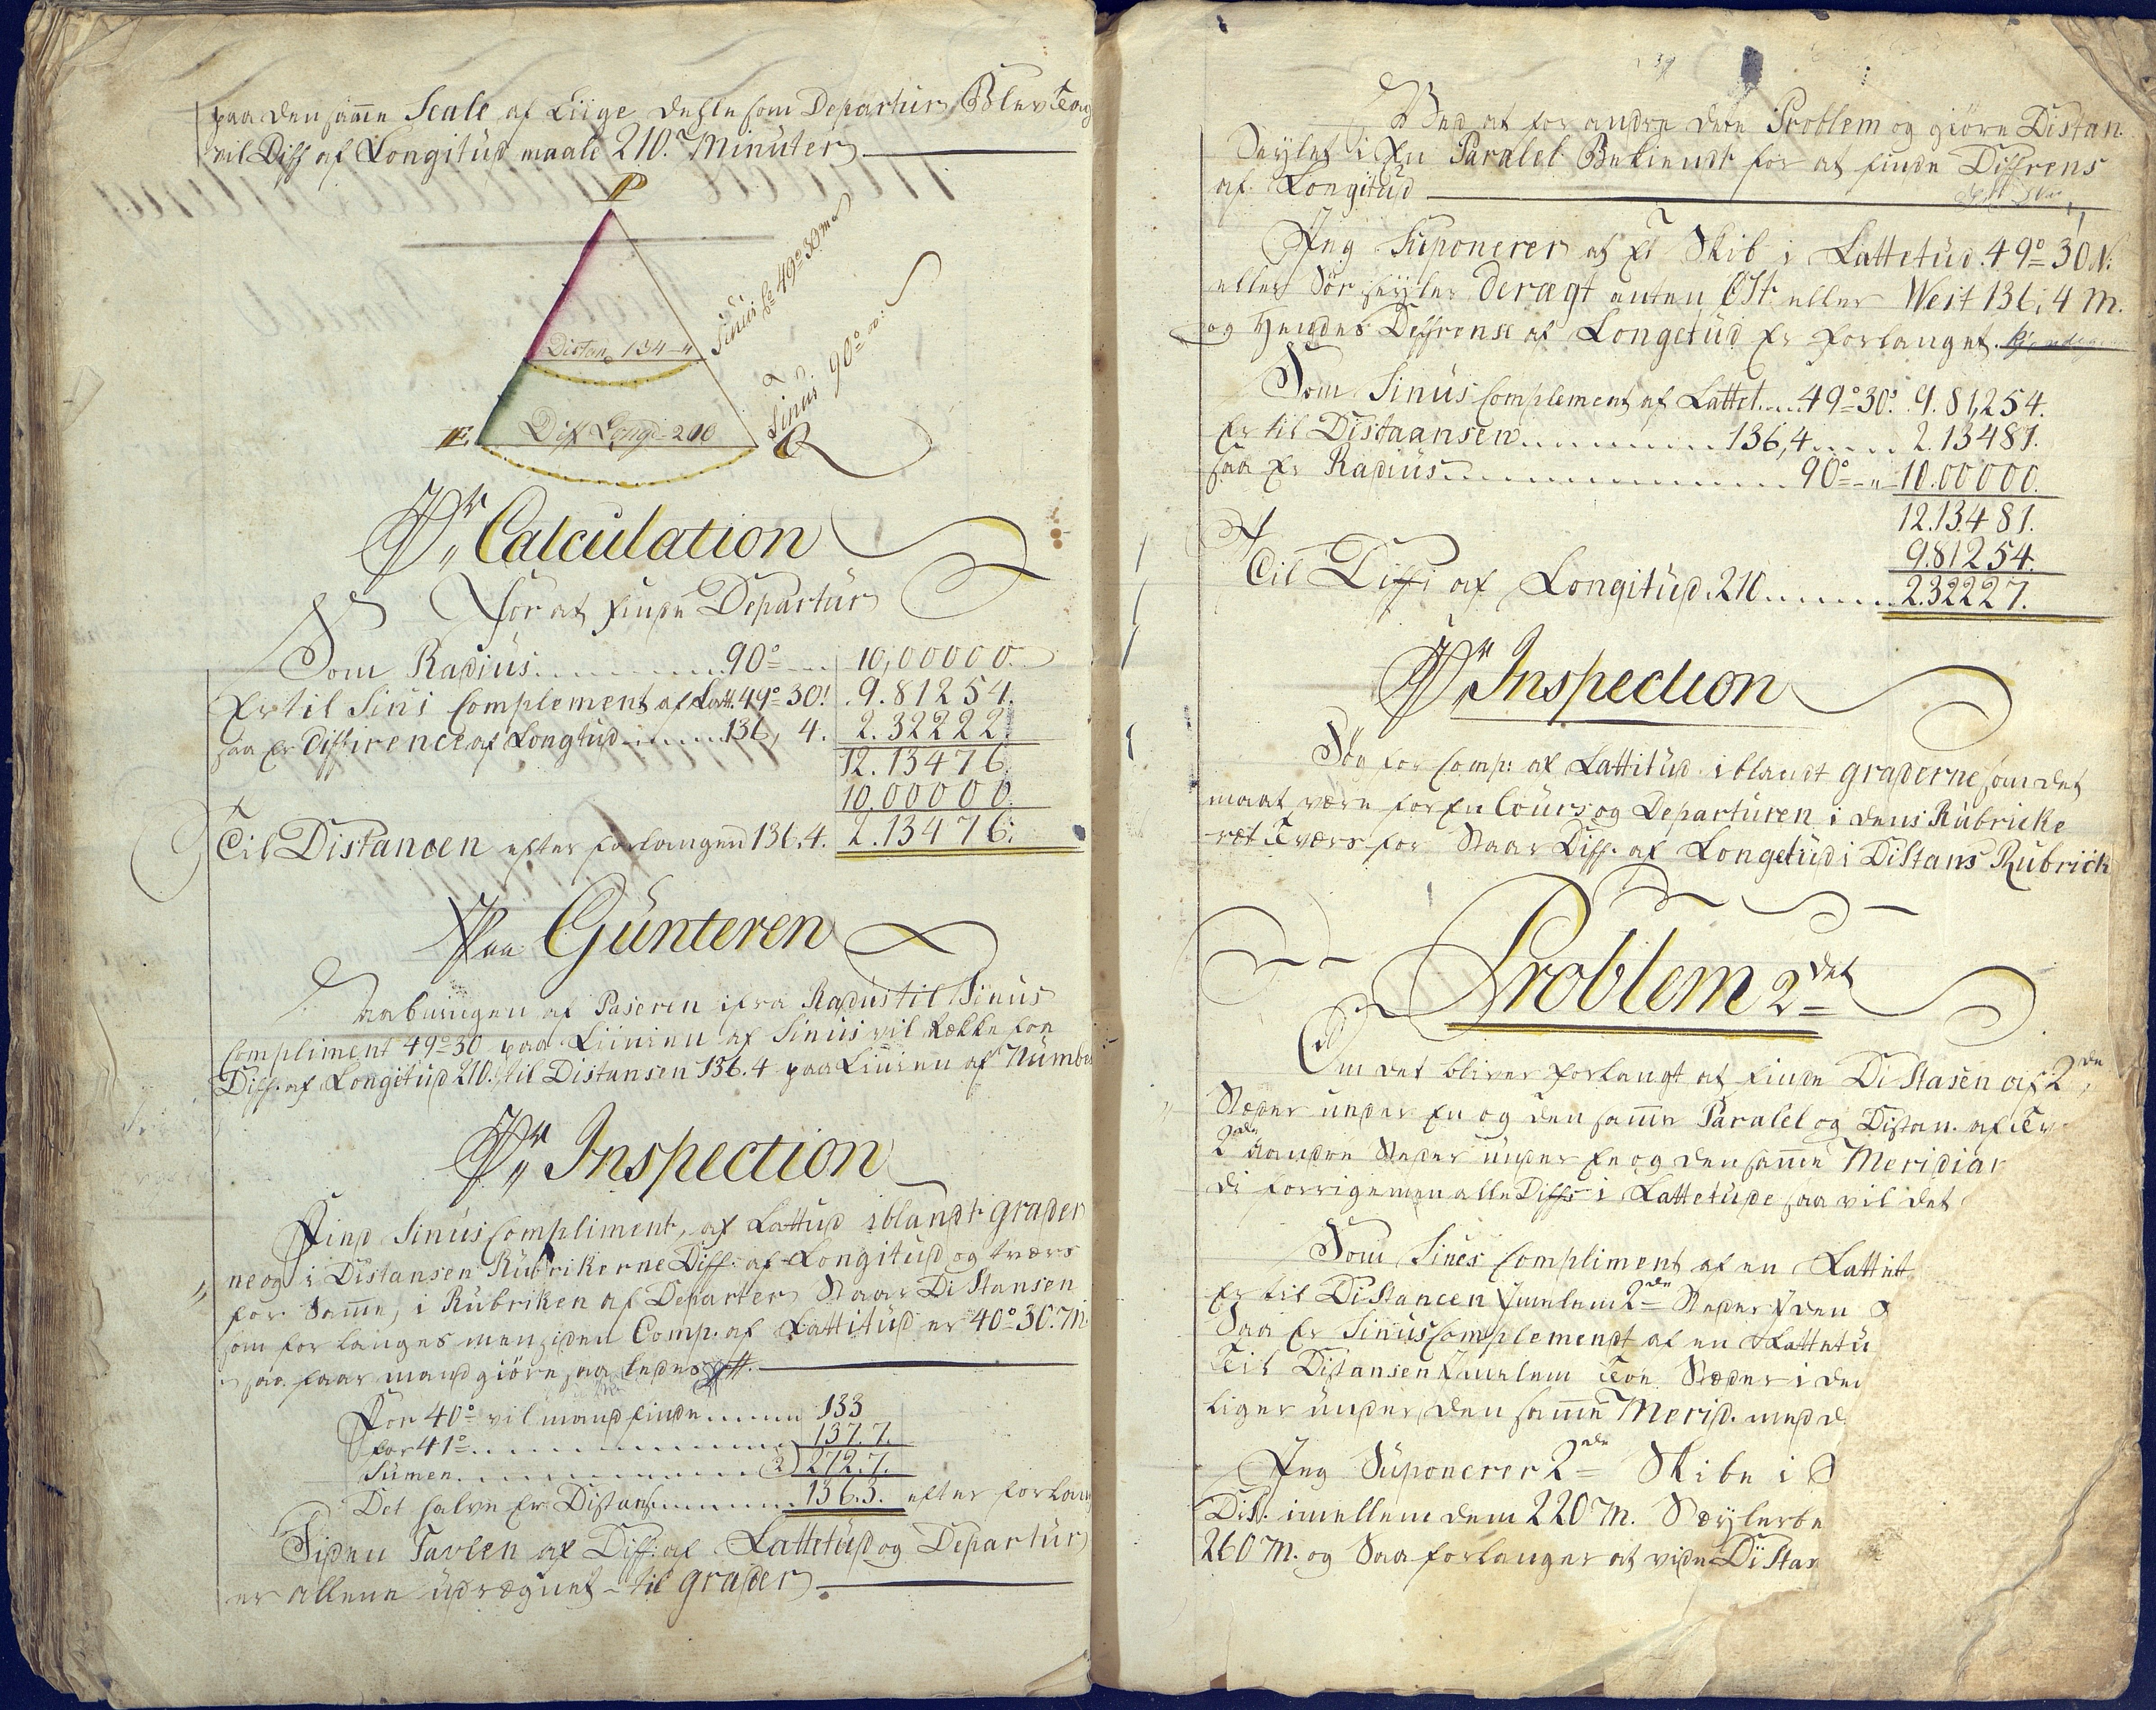 paa den samme Scale af Liige dehle som Departur Blev Tag
vil Diff af Longitüd maale 210. Minuter
P
Sinus Co 49° 30 m
Distan 134 - 4
Sinus 90°
Diff Longd = 210
Æ Q
Pr Calculation
For at finde Departür
Som Radius 90° 10,00000.
Er til Sini Complement af Latt. 49° 30! 9.81254.
saa Er Difference af Longtud 136, 4. 2.32222
12.13476
10.00000
Til Distancen efter forlangen 136.4. 2.13476.
Paa Günteren
Aabningen af Paseren ifra Radus til Sinus
Compliment 49° 30 paa Liinien af Sinus vil Række fra
Diff. af Longitud 210. til Distansen 136.4 paa Linien af Numbe
Pr Inspection
Find Sinus Compliment, af Lattud iblandt grader
ne og i Distansen Rubrikerne Diff: af Longitud og tværs
for Samme, i Rubriken af Departer Staar Distansen
som forlanges men siden Comp. af Lattitud er 40° 30. M
saa faar mand giøre saaledes
For 40° vil mand finde 133
for 41° 137.7.
Sumen 2) 272.7.
Det halve Er Distans 136.3. efter forlan
Siden Tavlen af Diff: af Lattetüd og Departür
er allene udregnet til grader
39
Ved at forandre dette Problem og giøre Distan.
Seylet i En Paralel Bekiendt for at finde Diffrens
af Longitüd
Jeg Suponerer at Et Skib i Lattetud. 49° 30 N.
eller Sör seyler deragt enten Øst eller West 136,4 M.
og hendes Deffrense af Longetüd Er forlanget.
Som Sinus Complement af Lattet 49° 30! 9.81254.
Er til Distaansen 136,4 2.13481.
saa Er Radius 90° 10.00000.
12.13481.
9.81254.
Til Diff: af Longitud. 210 2.32227.
Pr Inspection
Søg for Comp: af Lattitud iblandt graderne som det
maat være for En Cours og Departuren i dens Rubricke
ret Tværs for Staar Diff. af Longetüd i Distans Rubrick
Problem 2det
Om det bliver forlangt at finde Distasen af 2de
Steder under En og den samme Paralel og Distan. af
2de aandre Steder under En og den samme Meridian
di forrige men alle Diffs i Lattetude saa vil det
Som Sines Compliment af en Lattet
Er til Distancen imelem 2de Steder i den
Saa Er Sinus Complemendt af en Lattetu
Til Distansen imelem Toe Steder i den
liger under den samme Merid. med d
Jeg Suponerer 2de Skibe i
Dist. imellem dem 220 M. Seylerbe
260 M. og Saa forlanger at vide Distan